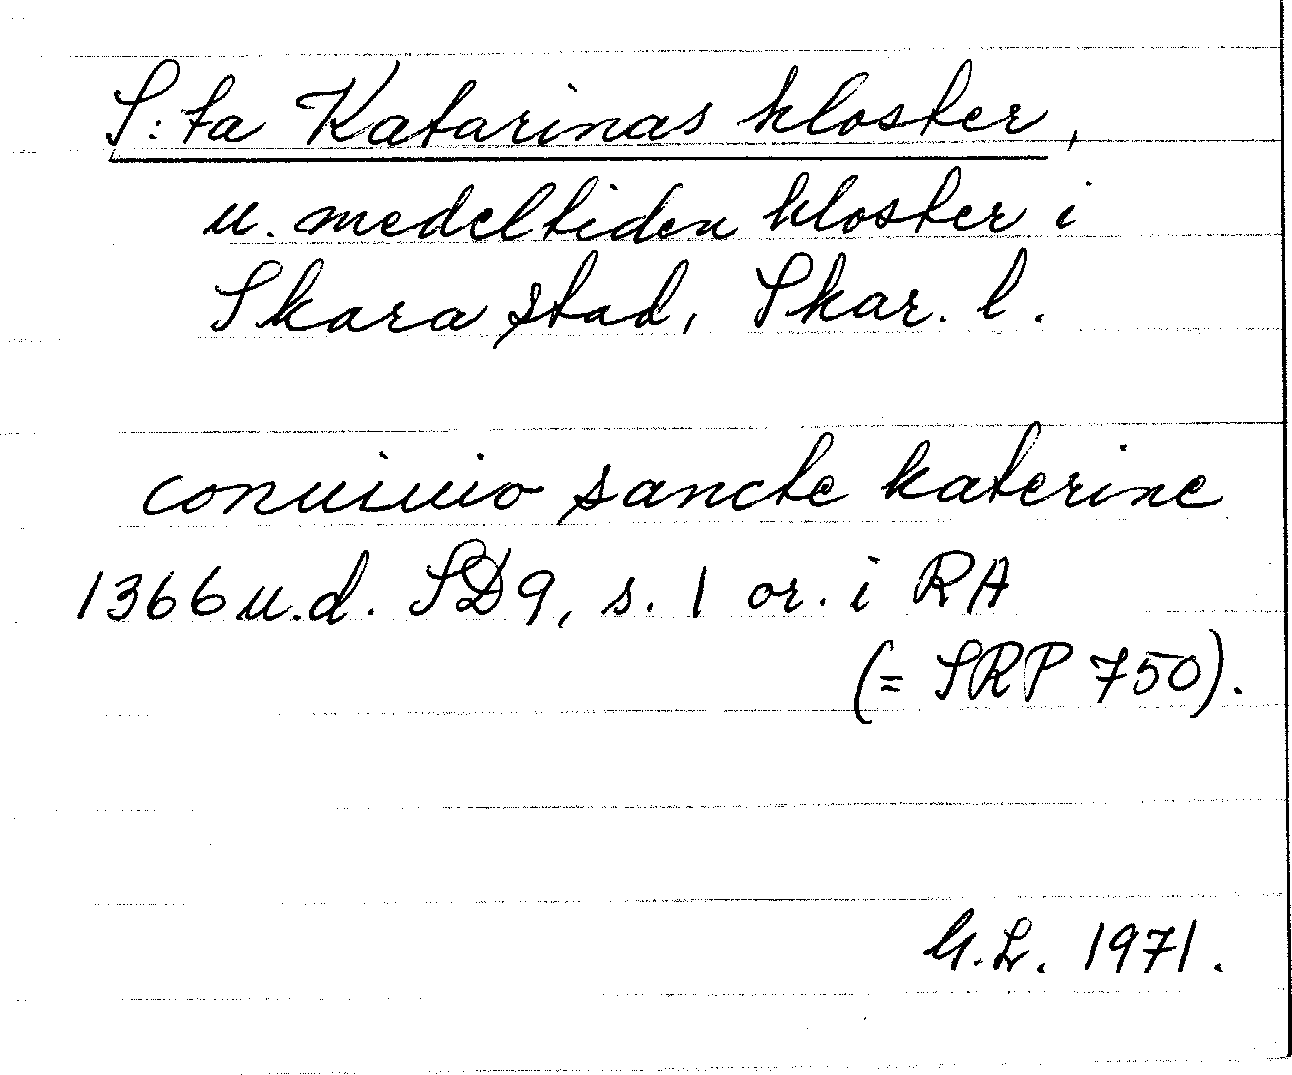 S:ta Katarinas kloster,
u. medeltiden kloster i
Skara stad, Skar. l.
conuiuio sancte katerine
1366 u.d. SD9, s. 1 or. i RA
(= SRP 750).
G.L. 1971.